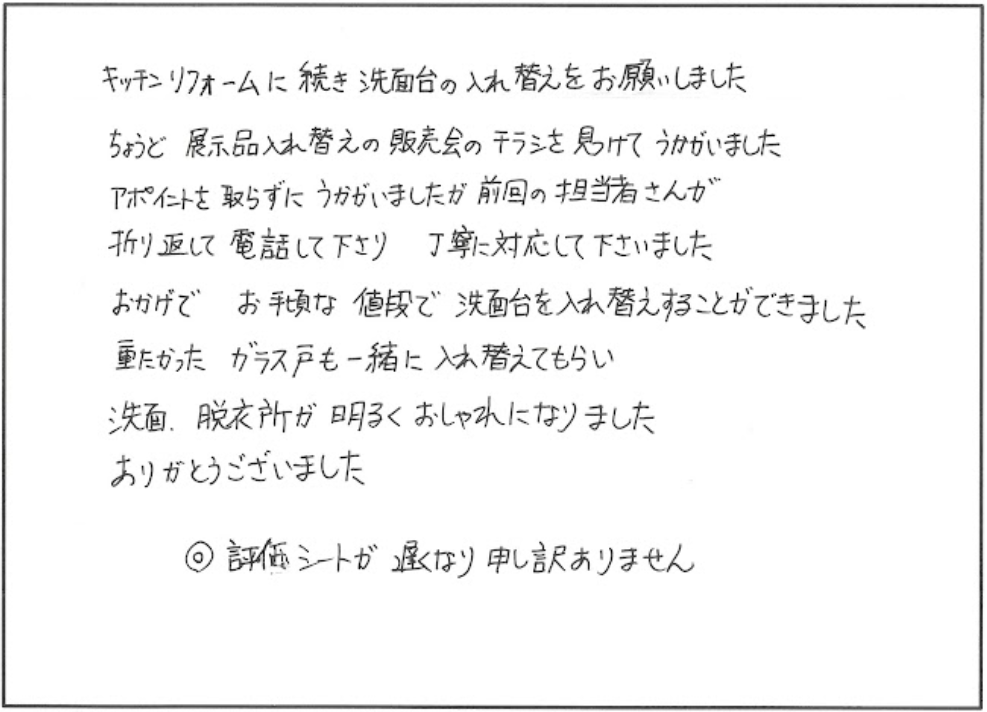 キッチンリフォームに 続き 洗面台の 入れ替えを お願いしました
ちょうど 展示品入れ替えの 販売会の チラシを 見つけて うかがいました
アポイントを 取らずに うかがいましたが 前回の 担当者さんが
折り返して 電話して下さり 丁寧に対応して下さいました
おかげで お手頃な 値段で 洗面台を入れ替えすることができました
重たかった ガラス戸も一緒に 入れ替えてもらい
洗面、脱衣所が 明るく おしゃれになりました
ありがとうございました
◎ 評価シートが 遅くなり 申し訳ありません